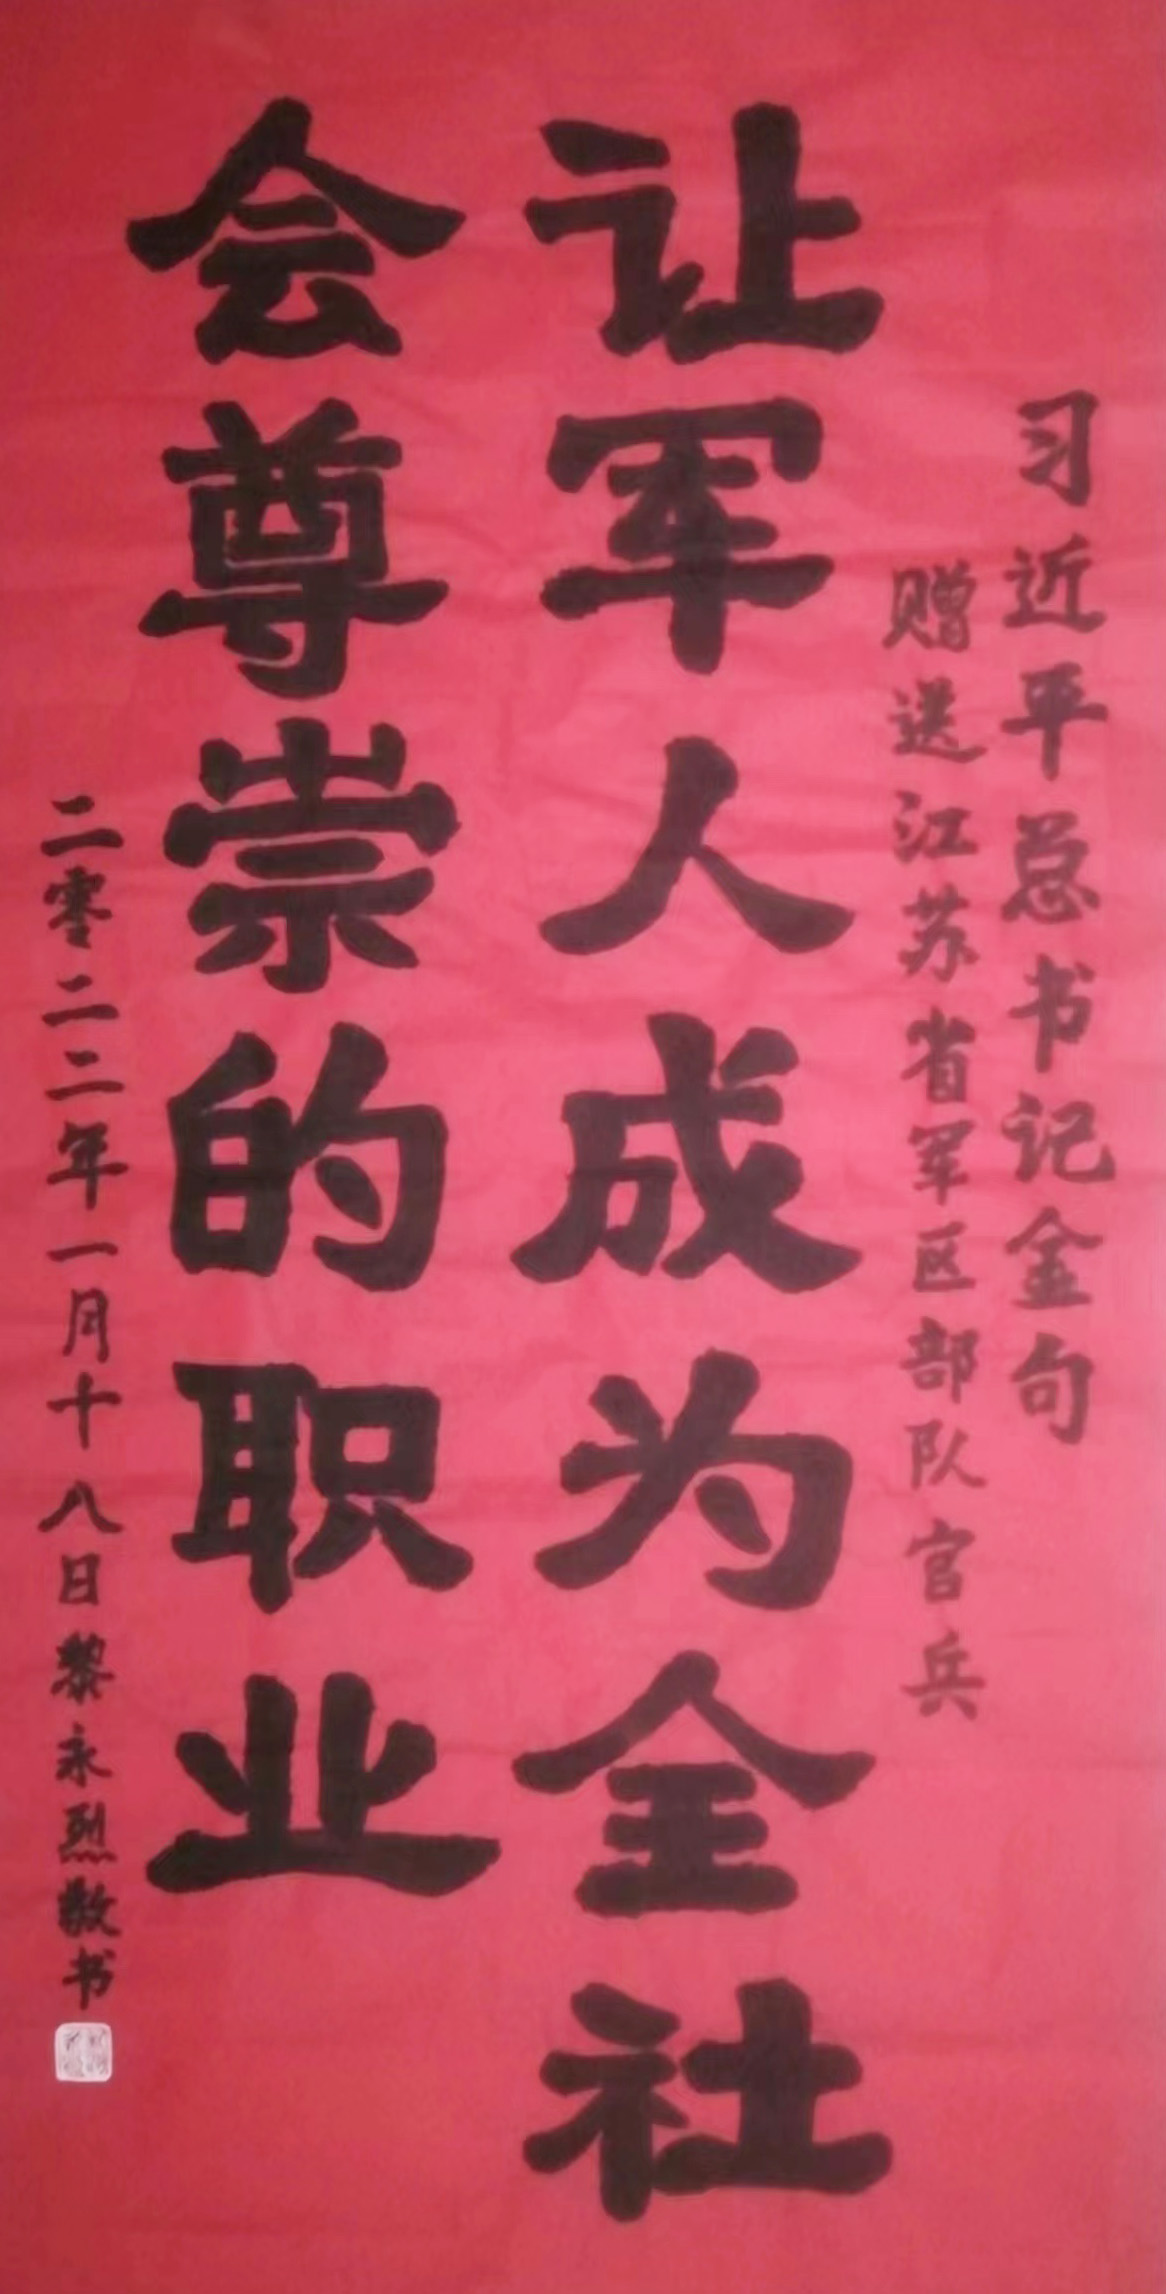 习近平总书记金句
赠送江苏省军区部队官兵
让军人成为全社
会尊崇的职业
二零二二年一月十八日黎永烈敬书